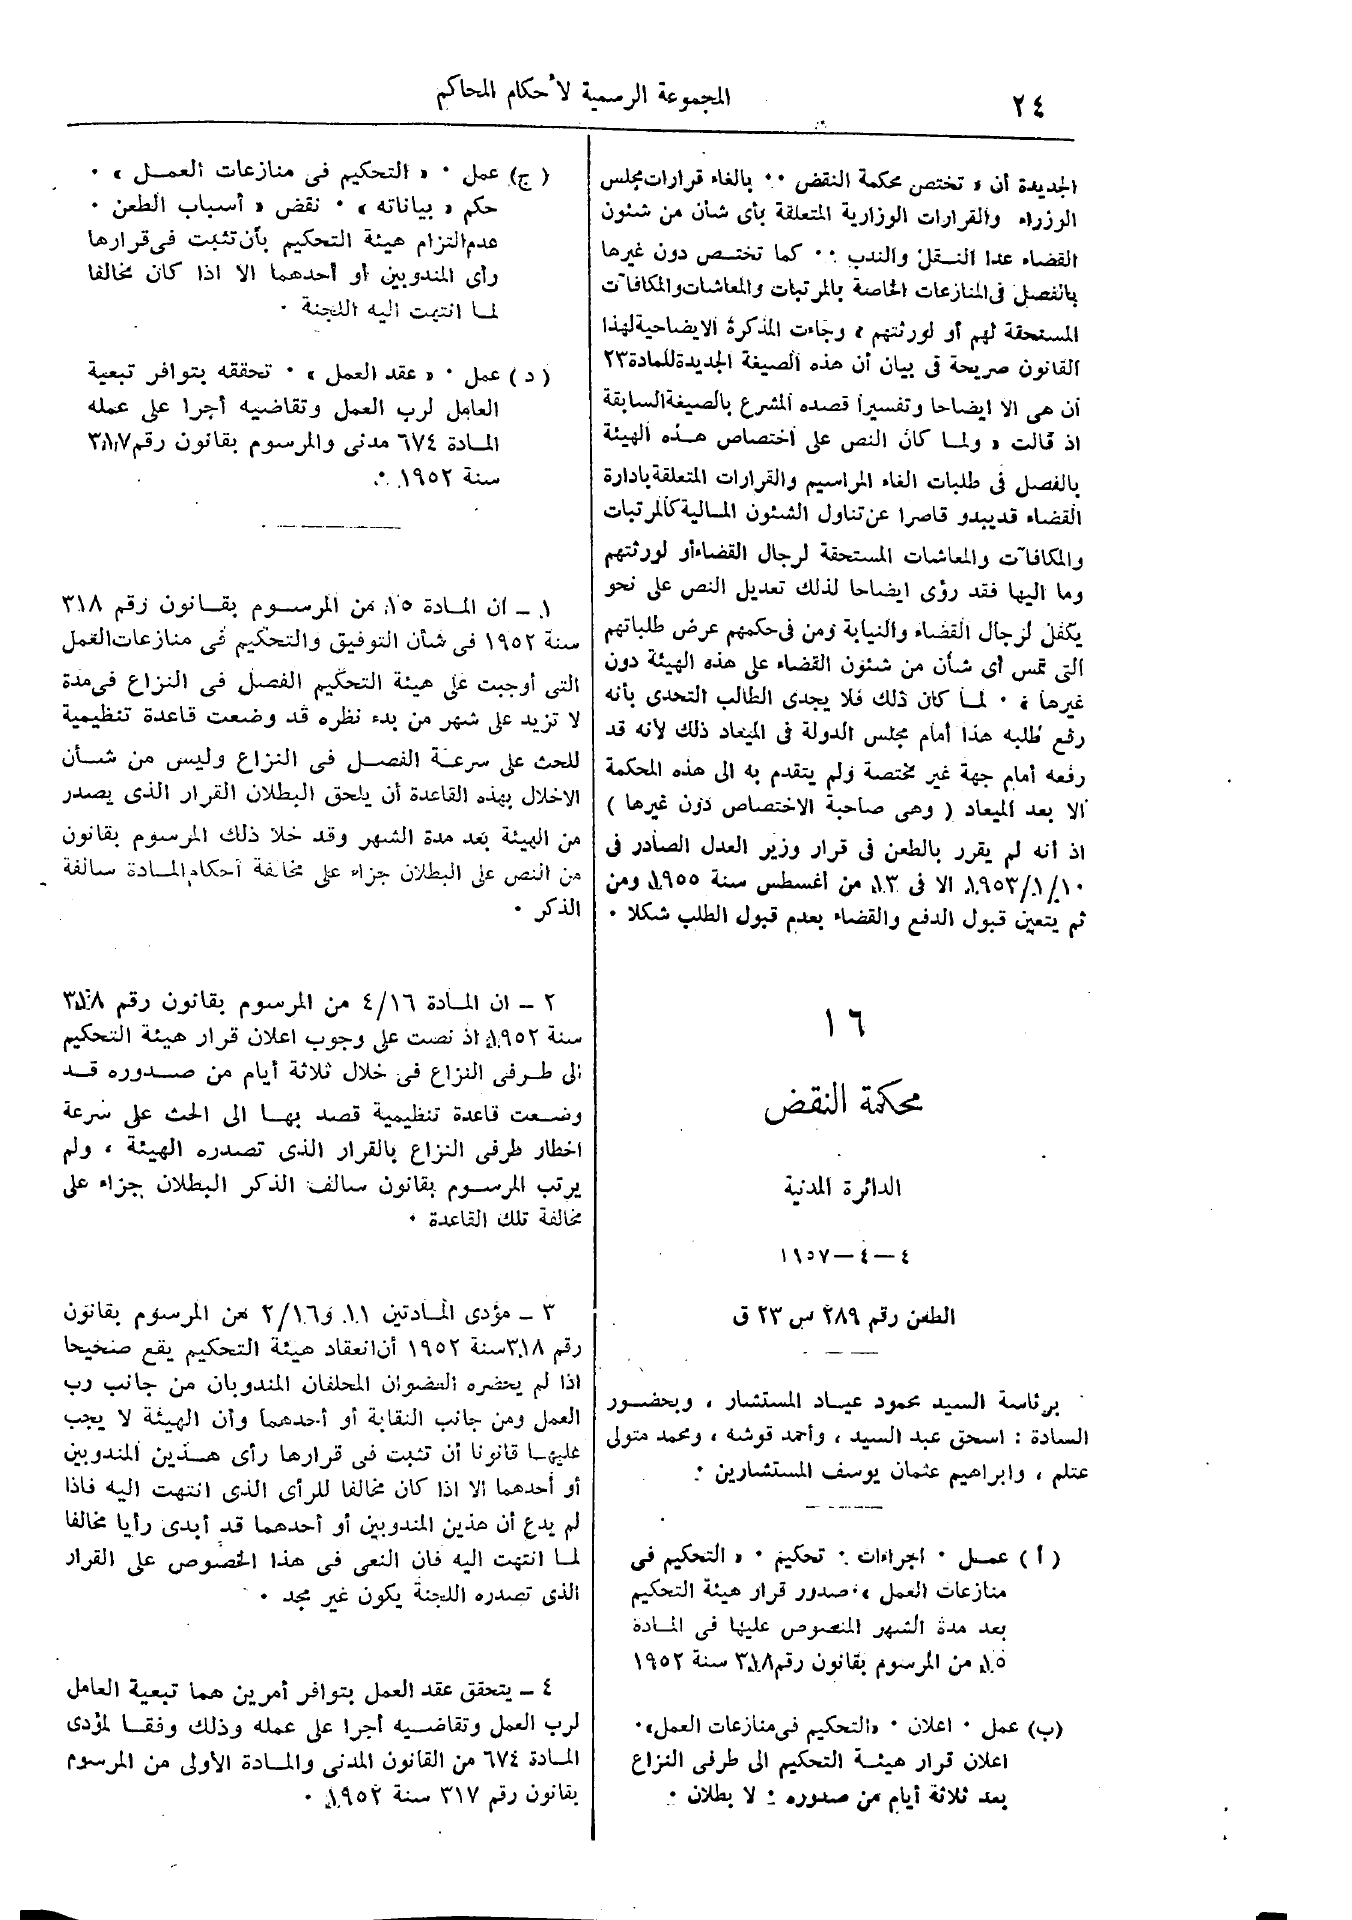 ٢٤
المجموعة الرسمية لأحكام المحاكم
الجديدة أن « تختص محكمة النقض ٠٠ بالغاء قرارات مجلس
الوزراء والقرارات الوزارية المتعلقة بأى شأن من شئون
القضاء عدا النقل والندب ٠٠ كما تختص دون غيرها
بالفصل فى المنازعات الخاصة بالمرتبات والمعاشات والمكافآت
المستحقة لهم أو لورثتهم » وجاءت المذكرة الايضاحية لهذا
القانون صريحة فى بيان أن هذه الصيغة الجديدة للمادة ٢٣
أن هى الا ايضاحا وتفسيرا قصده المشرع بالصيغة السابقة
اذ قالت « ولما كان النص على اختصاص هذه الهيئة
بالفصل فى طلبات الغاء المراسيم والقرارات المتعلقة بادارة
القضاء قد يبدو قاصرا عن تناول الشئون المالية كالمرتبات
والمكافآت والمعاشات المستحقة لرجال القضاء أو لورثتهم
وما اليها فقد رؤى ايضاحا لذلك تعديل النص على نحو
يكفل لرجال القضاء والنيابة ومن فى حكمهم عرض طلباتهم
التى تمس أى شأن من شئون القضاء على هذه الهيئة دون
غيرها » ٠ لما كان ذلك فلا يجدى الطالب التحدى بأنه
رفع طلبه هذا أمام مجلس الدولة فى الميعاد ذلك لأنه قد
رفعه أمام جهة غير مختصة ولم يتقدم به الى هذه المحكمة
الا بعد الميعاد ( وهى صاحبة الاختصاص دون غيرها )
اذ أنه لم يقرر بالطعن فى قرار وزير العدل الصادر فى
١٩٥٣/١/١٠ الا فى ١٣ من أغسطس سنة ١٩٥٥ ومن
ثم يتعين قبول الدفع والقضاء بعدم قبول الطلب شكلا ٠
١٦
محكمة النقض
الدائرة المدنية
٤ – ٤ – ١٩٥٧
الطعن رقم ٢٨٩ س ٢٣ ق
برئاسة السيد محمود عياد المستشار ، وبحضور
السادة : اسحق عبد السيد ، وأحمد قوشه ، ومحمد متولى
عتلم ، وابراهيم عثمان يوسف المستشارين ٠
( أ ) عمل ٠ اجراءات ٠ تحكيم ٠ « التحكيم فى
منازعات العمل » ٠ صدور قرار هيئة التحكيم
بعد مدة الشهر المنصوص عليها فى المادة
١٥ من المرسوم بقانون رقم ٣١٨ سنة ١٩٥٢
(ب) عمل ٠ اعلان ٠ «التحكيم فى منازعات العمل»٠
اعلان قرار هيئة التحكيم الى طرفى النزاع
بعد ثلاثة أيام من صدوره : لا بطلان ٠
(ج) عمل ٠ « التحكيم فى منازعات العمل » ٠
حكم « بياناته » ٠ نقض « أسباب الطعن ٠
عدم التزام هيئة التحكيم بأن تثبت فى قرارها
رأى المندوبين أو أحدهما الا اذا كان مخالفا
لما انتهت اليه اللجنة ٠
( د ) عمل ٠ « عقد العمل » ٠ تحققه بتوافر تبعية
العامل لرب العمل وتقاضيه أجرا على عمله
المادة ٦٧٤ مدنى والمرسوم بقانون رقم ٣١٧
سنة ١٩٥٢ ٠
١ – ان المادة ١٥ من المرسوم بقانون رقم ٣١٨
سنة ١٩٥٢ فى شأن التوفيق والتحكيم فى منازعات العمل
التى أوجبت على هيئة التحكيم الفصل فى النزاع فى مدة
لا تزيد على شهر من بدء نظره قد وضعت قاعدة تنظيمية
للحث على سرعة الفصل فى النزاع وليس من شأن
الاخلال بهذه القاعدة أن يلحق البطلان القرار الذى يصدر
من الهيئة بعد مدة الشهر وقد خلا ذلك المرسوم بقانون
من النص على البطلان جزاء على مخالفة أحكام المادة سالفة
الذكر ٠
٢ – ان المادة ٤/١٦ من المرسوم بقانون رقم ٣١٨
سنة ١٩٥٢ اذ نصت على وجوب اعلان قرار هيئة التحكيم
الى طرفى النزاع فى خلال ثلاثة أيام من صدوره قد
وضعت قاعدة تنظيمية قصد بها الى الحث على سرعة
اخطار طرفى النزاع بالقرار الذى تصدره الهيئة ، ولم
يرتب المرسوم بقانون سالف الذكر البطلان جزاء على
مخالفة تلك القاعدة ٠
٣ – مؤدى المادتين ١١ و٢/١٦ من المرسوم بقانون
رقم ٣١٨ سنة ١٩٥٢ أن انعقاد هيئة التحكيم يقع صحيحا
اذا لم يحضره العضوان المحلفان المندوبان من جانب رب
العمل ومن جانب النقابة أو أحدهما وأن الهيئة لا يجب
عليها قانونا أن تثبت فى قرارها رأى هذين المندوبين
أو أحدهما الا اذا كان مخالفا للرأى الذى انتهت اليه فاذا
لم يدع أن هذين المندوبين أو أحدهما قد أبدى رأيا مخالفا
لما انتهت اليه فان النعى فى هذا الخصوص على القرار
الذى تصدره اللجنة يكون غير مجد ٠
٤ – يتحقق عقد العمل بتوافر أمرين هما تبعية العامل
لرب العمل وتقاضيه أجرا على عمله وذلك وفقا لمؤدى
المادة ٦٧٤ من القانون المدنى والمادة الأولى من المرسوم
بقانون رقم ٣١٧ سنة ١٩٥٢ ٠